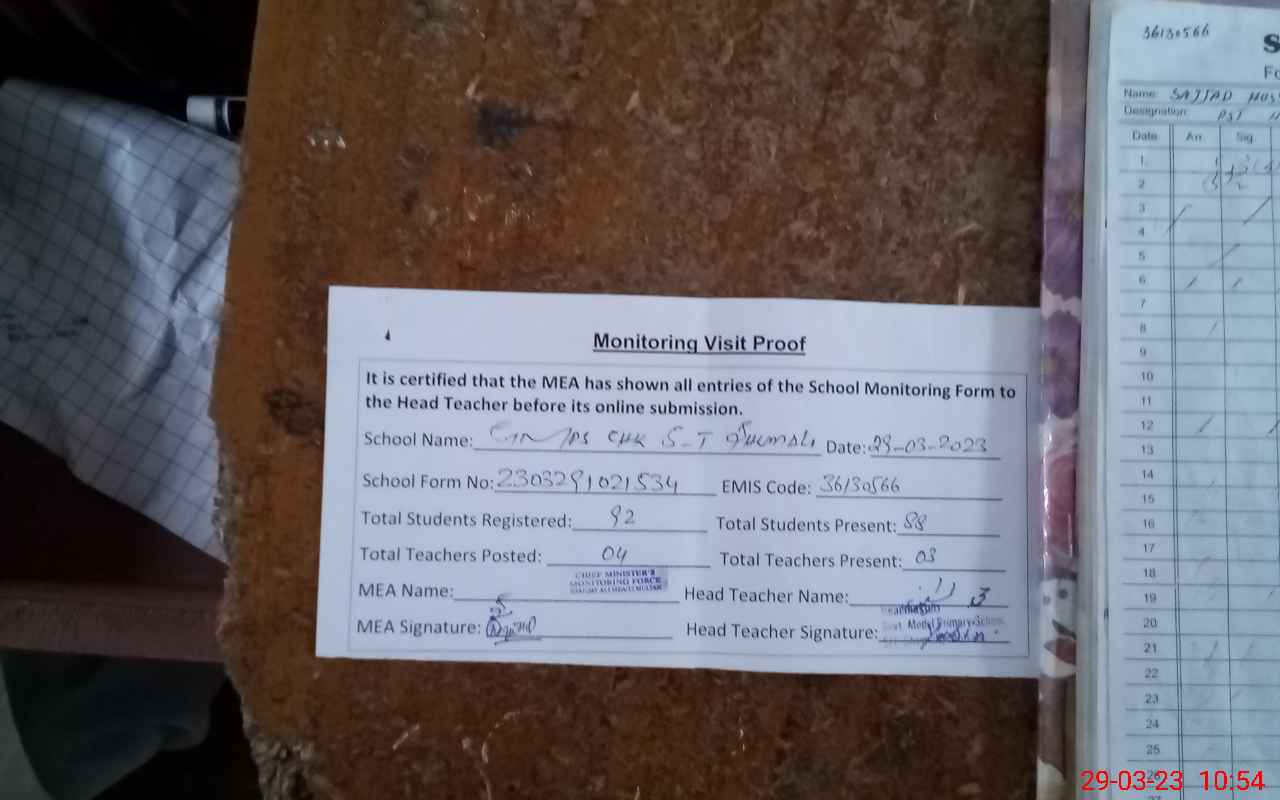 Monitoring Visit Proof
It is certified that the MEA has shown all entries of the School Monitoring Form to
the Head Teacher before its online submission.
School Name: Date: 29-03-2023
School Form No: 2303291021534 EMIS Code: 36130566
Total Students Registered: 92 Total Students Present: 88
Total Teachers Posted: 04 Total Teachers Present: 03
CHIEF MINISTER'S
MONITORING FORCE
MEA Name: Head Teacher Name:
MEA Signature: Head Teacher Signature:
Govt. Model Primary School
36130566
S
Fo
Name: SAJJAD HUS
Designation: PST
Date Arr. Sig.
1
2
3
4
5
6
7
8
9
10
11
12
13
14
15
16
17
18
19
20
21
22
23
24
25
26
29-03-23 10:54